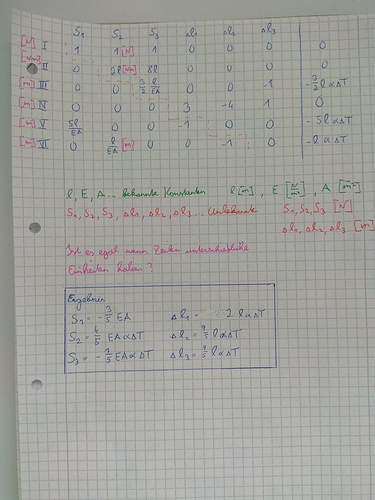 S₁ S₂ S₃ Δl₁ Δl₂ Δl₃
[N] I 1 1[N] 1 0 0 0 0
[Nm] II 0 2l[Nm] 8l 0 0 0 0
[m] III 0 0 3/2 l/EA 0 0 -1 -3/2 l α ΔT
[m] IV 0 0 0 3 -4 1 0
[m] V 5l/EA 0 0 -1 0 0 -5l α ΔT
[m] VI 0 l/EA [m] 0 0 -1 0 -l α ΔT
l, E, A... bekannte Konstanten l [m], E [N/m²], A [m²]
S₁, S₂, S₃, Δl₁, Δl₂, Δl₃... Unbekannte S₁, S₂, S₃ [N]
Δl₁, Δl₂, Δl₃ [m]
Ist es egal wenn Zeilen unterschiedliche
Einheiten haben?
Ergebnisse
S₁ = -3/5 EA Δl₁ = 2 l α ΔT
S₂ = 4/5 EA α ΔT Δl₂ = 9/5 l α ΔT
S₃ = -1/5 EA α ΔT Δl₃ = 9/5 l α ΔT